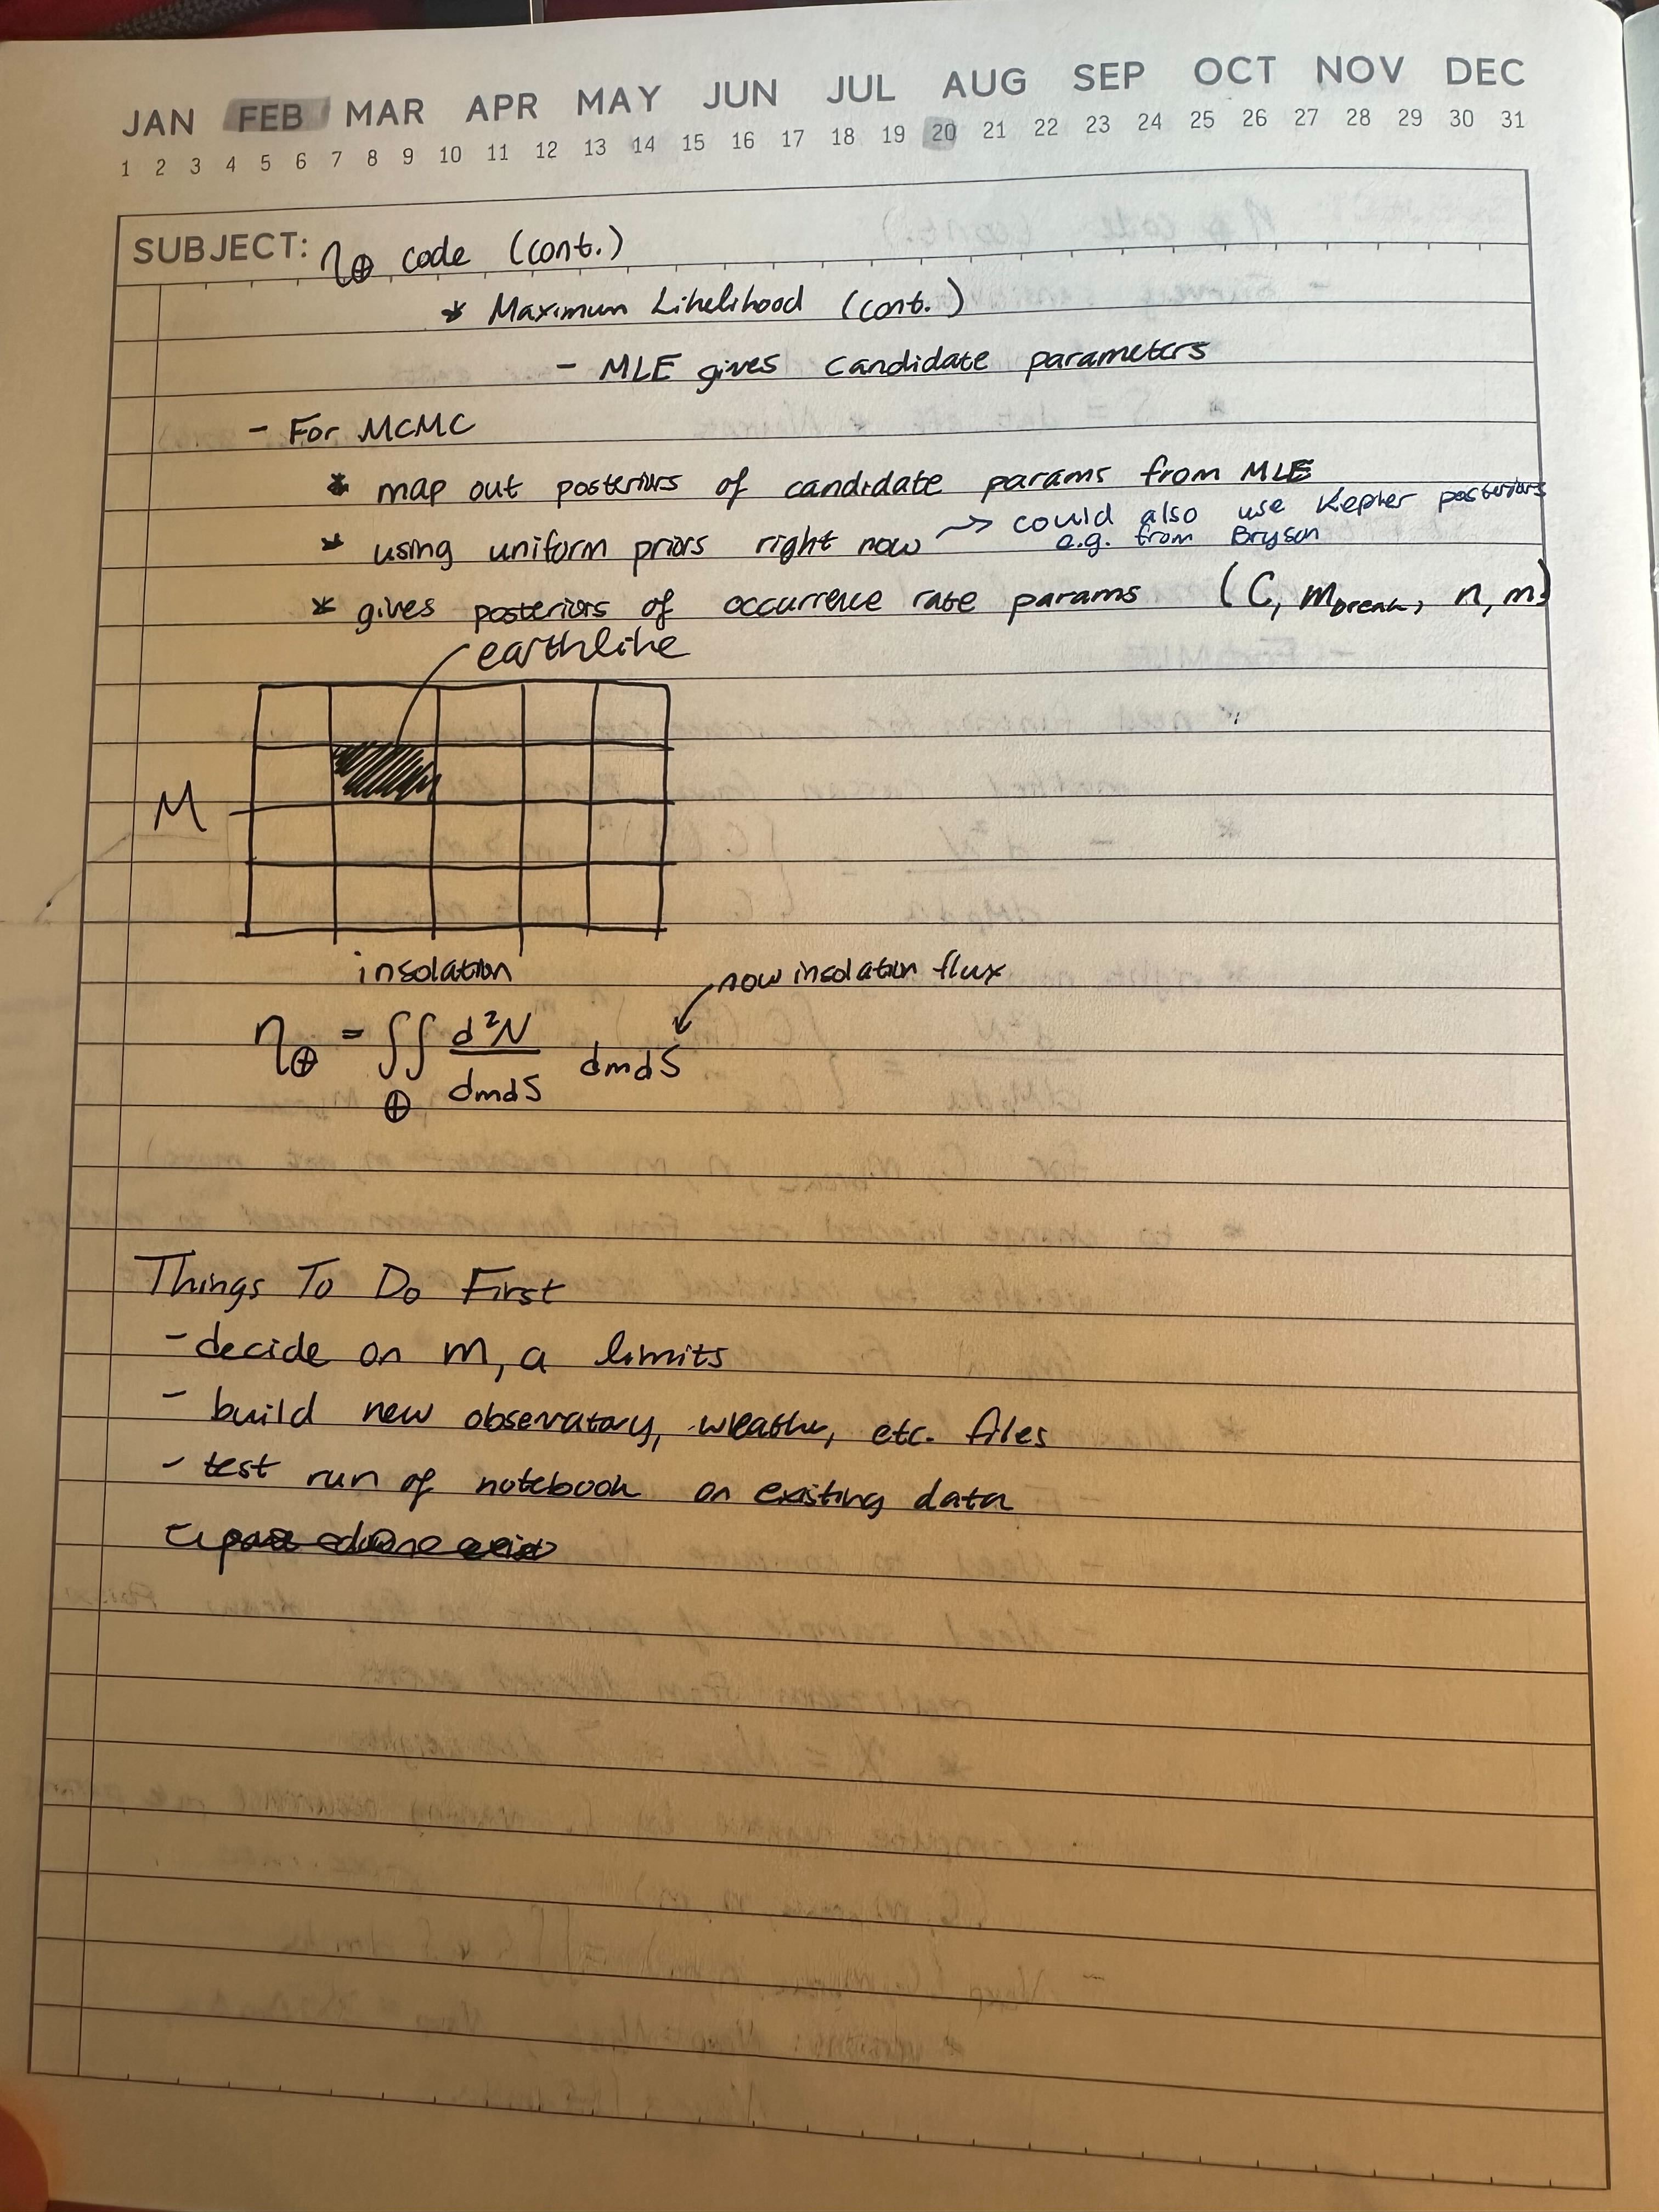 JAN FEB MAR APR MAY JUN JUL AUG SEP OCT NOV DEC
1 2 3 4 5 6 7 8 9 10 11 12 13 14 15 16 17 18 19 20 21 22 23 24 25 26 27 28 29 30 31
SUBJECT: η⊕ code (cont.)
* Maximum Likelihood (cont.)
- MLE gives candidate parameters
- For MCMC
* map out posteriors of candidate params from MLE
* using uniform priors right now → could also use Kepler posteriors
e.g. from Bryson
* gives posteriors of occurrence rate params (C, m_break, n, m)
earthlike
M
insolation
now insolation flux
η⊕ = ∫∫⊕ d²N/dmdS dmdS
Things To Do First
- decide on m, a limits
- build new observatory, weather, etc. files
- test run of notebook on existing data